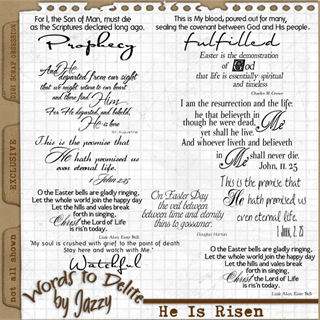 For I, the Son of Man, must die
as the Scriptures declared long ago.
Prophecy
And He
departed from our sight
that we might return to our heart
and there find Him
For He departed, and behold,
He is here
St. Augustine
This is the promise that
He hath promised us
even eternal life.
1 John 2:25
O the Easter bells are gladly ringing,
Let the whole world join the happy day
Let the hills and vales break
forth in singing,
Christ the Lord of Life
is ris'n today.
Little Alice's Easter Bells
"My soul is crushed with grief to the point of death
Stay here and watch with Me."
Watchful
This is My blood, poured out for many,
sealing the covenant between God and His people.
fulfilled
Easter is the demonstration
of God
that life is essentially spiritual
and timeless
Charles M Crowe
I am the resurrection and the life:
he that believeth in Me
though he were dead,
yet shall he live:
And whoever liveth and believeth
in Me shall never die.
John, 11. 25
On Easter Day
the veil between
time and eternity
thins to gossamer.
Douglas Horton
This is the promise that
He hath promised us
even eternal life.
1 John, 2. 25
O the Easter bells are gladly ringing,
Let the whole world join the happy day
Let the hills and vales break
forth in singing,
Christ the Lord of Life
is ris'n today.
Little Alice's Easter Bells
DIGI SCRAP OBSESSION
EXCLUSIVE
not all shown
Words to Delite
by Jazzy
He Is Risen